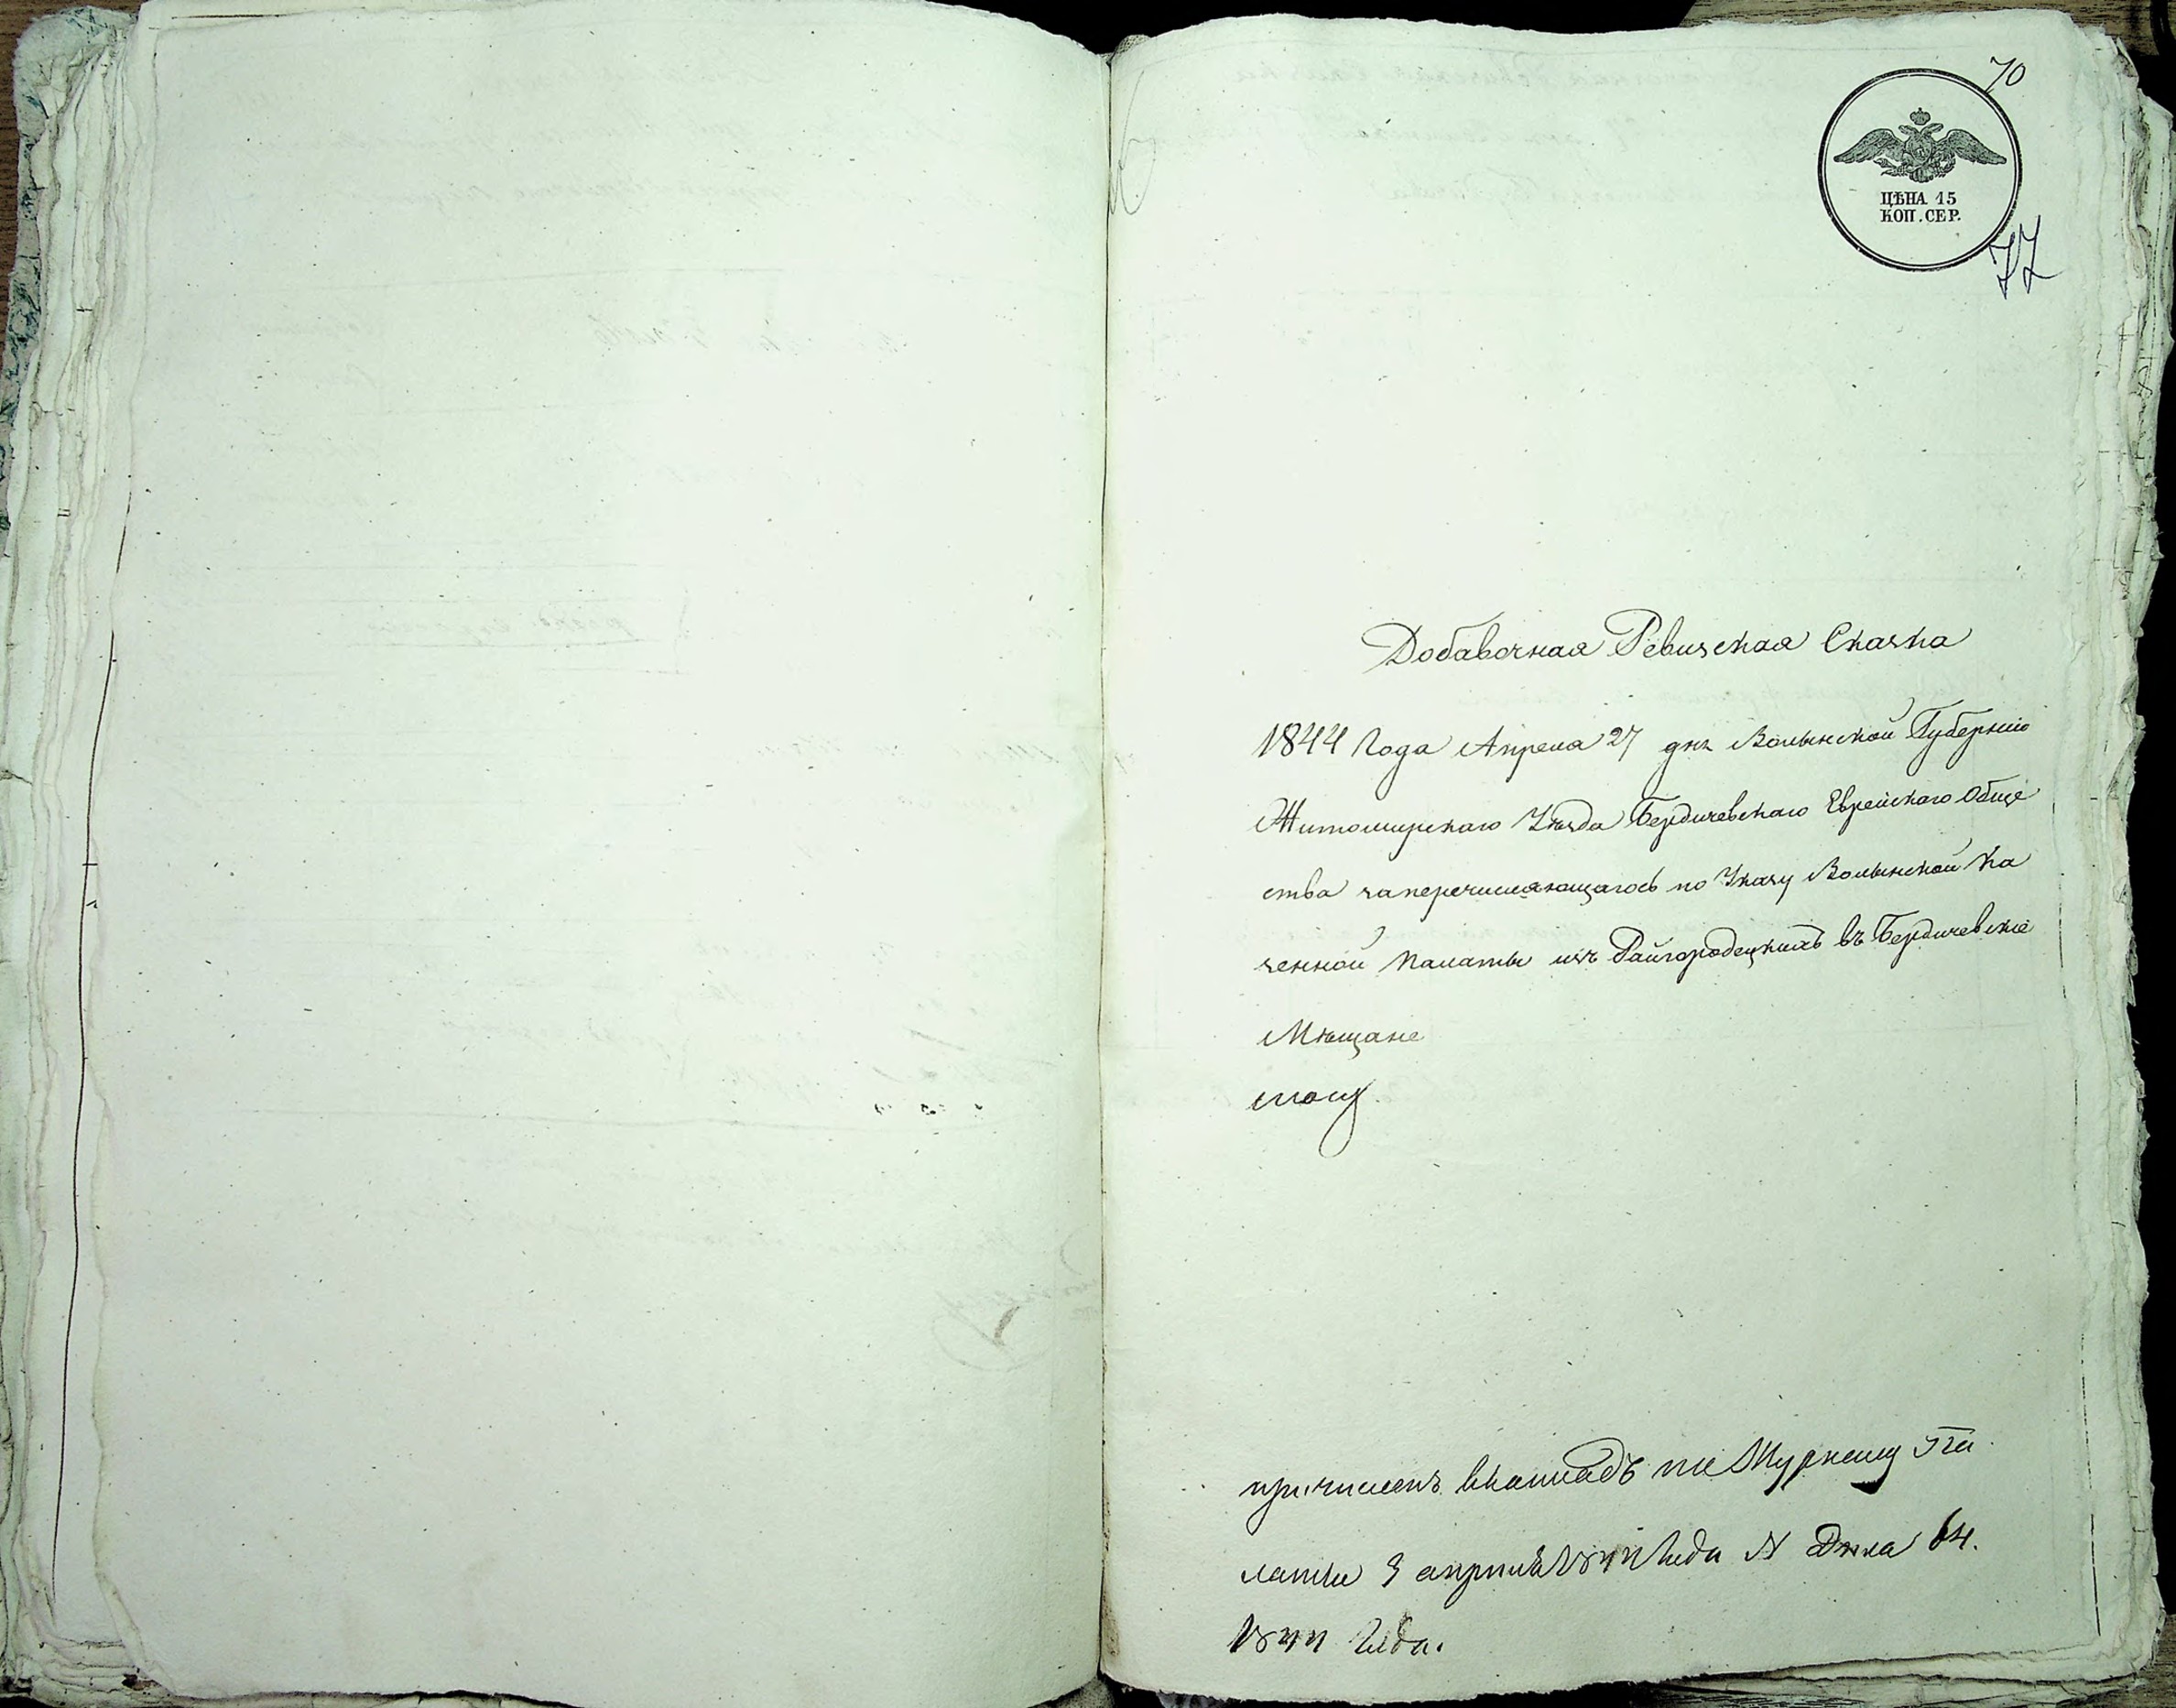 70
ЦѢНА 15
КОП. СЕР.
77
Добавочная Ревизская Сказка
1844 Года Апреля 27 дня Волынской Губернии
Житомирскаго Уѣзда Бердичевскаго Еврейскаго Обще
ства заперечисляющагось по Указу Волынской Ка
зенной Палаты изъ Райгородецкихъ въ Бердичевскіе
Мѣщане
причисленъ вкампадъ по Журналу Па
латы 3 апрѣля 1844 Года № Дѣла 64.
1844 Года.